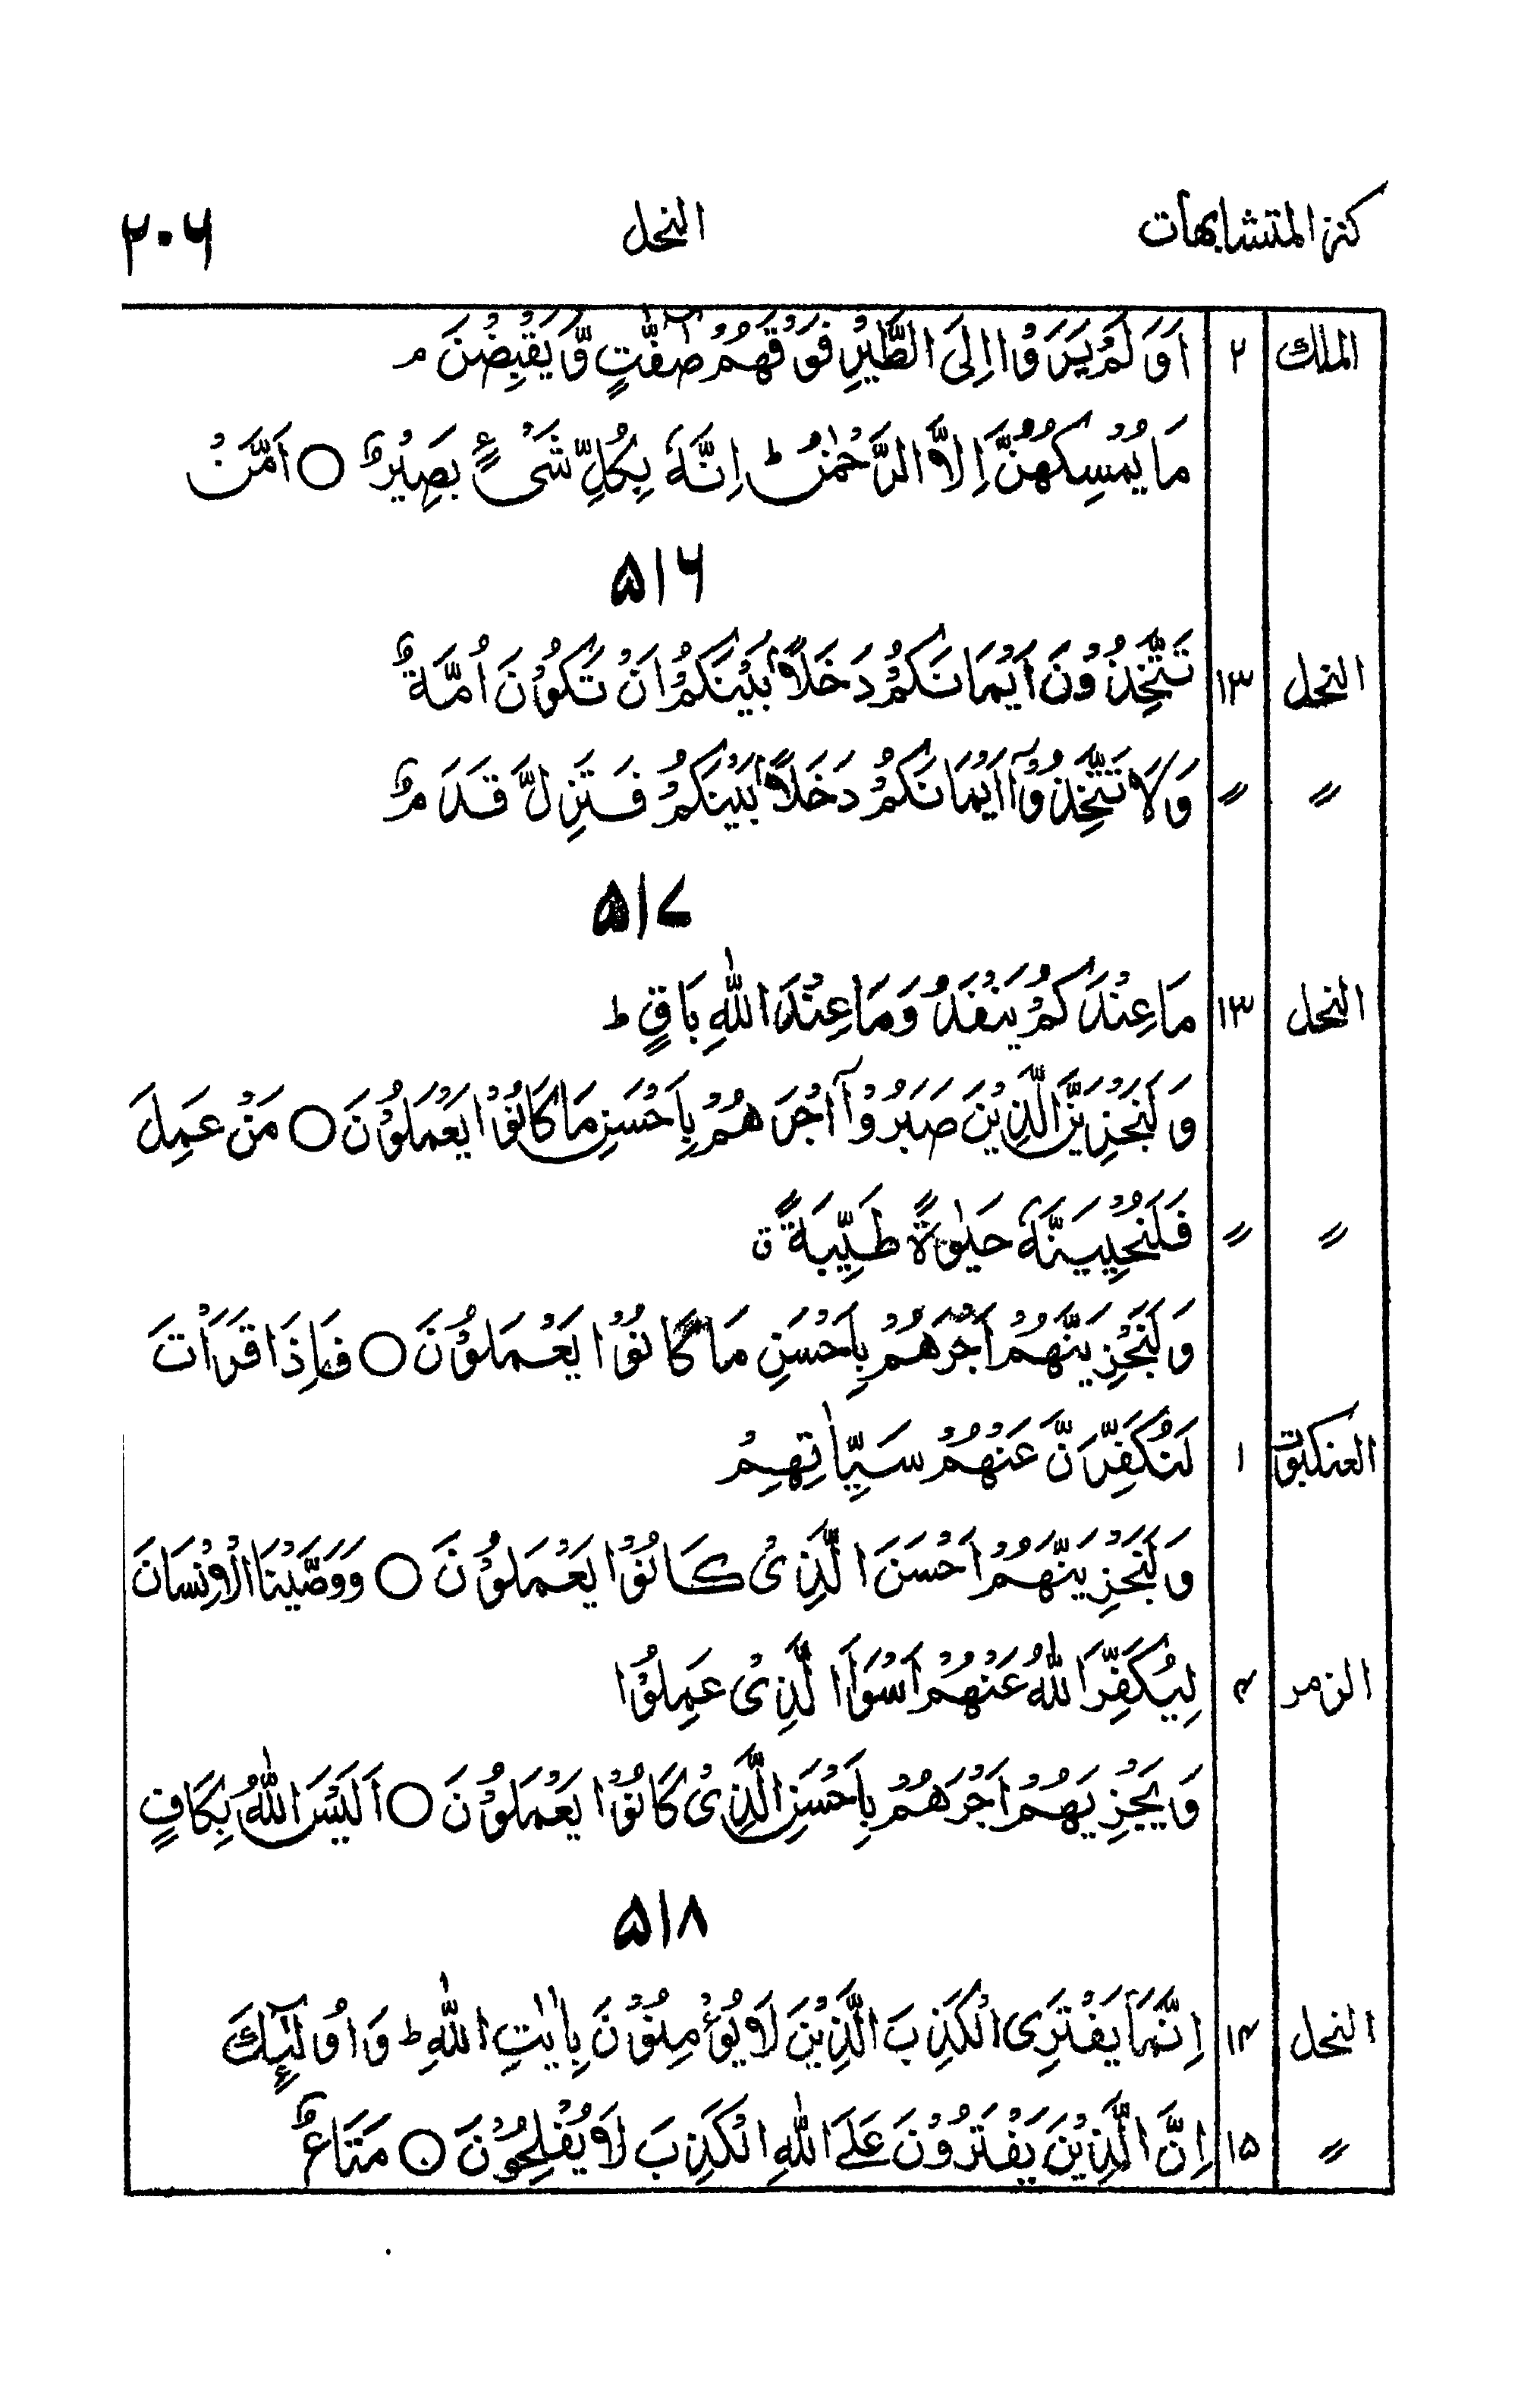 كنز المتشابهات النحل ۲۰۶
الملك ۲ اَوَلَمْ يَرَوْا اِلَى الطَّيْرِ فَوْقَهُمْ صٰٓفّٰتٍ وَّيَقْبِضْنَ م
مَا يُمْسِكُهُنَّ اِلَّا الرَّحْمٰنُ ط اِنَّهٗ بِكُلِّ شَىْءٍ بَصِيْرٌ ○ اَمَّنْ
۵۱۶
النحل ۱۳ تَتَّخِذُوْنَ اَيْمَانَكُمْ دَخَلًاۢ بَيْنَكُمْ اَنْ تَكُوْنَ اُمَّةٌ
〃 〃 وَلَا تَتَّخِذُوْٓا اَيْمَانَكُمْ دَخَلًاۢ بَيْنَكُمْ فَتَزِلَّ قَدَمٌ
۵۱۷
النحل ۱۳ مَا عِنْدَكُمْ يَنْفَدُ وَمَا عِنْدَ اللّٰهِ بَاقٍ ط
وَلَنَجْزِيَنَّ الَّذِيْنَ صَبَرُوْٓا اَجْرَهُمْ بِاَحْسَنِ مَا كَانُوْا يَعْمَلُوْنَ ○ مَنْ عَمِلَ
〃 〃 فَلَنُحْيِيَنَّهٗ حَيٰوةً طَيِّبَةً ۃ
وَلَنَجْزِيَنَّهُمْ اَجْرَهُمْ بِاَحْسَنِ مَا كَانُوْا يَعْمَلُوْنَ ○ فَاِذَا قَرَاْتَ
العنكبوت ۱ لَنُكَفِّرَنَّ عَنْهُمْ سَيِّاٰتِهِمْ
وَلَنَجْزِيَنَّهُمْ اَحْسَنَ الَّذِىْ كَانُوْا يَعْمَلُوْنَ ○ وَوَصَّيْنَا الْاِنْسَانَ
الزمر ۴ لِيُكَفِّرَ اللّٰهُ عَنْهُمْ اَسْوَاَ الَّذِىْ عَمِلُوْا
وَيَجْزِيَهُمْ اَجْرَهُمْ بِاَحْسَنِ الَّذِىْ كَانُوْا يَعْمَلُوْنَ ○ اَلَيْسَ اللّٰهُ بِكَافٍ
۵۱۸
النحل ۱۴ اِنَّمَا يَفْتَرِى الْكَذِبَ الَّذِيْنَ لَا يُؤْمِنُوْنَ بِاٰيٰتِ اللّٰهِ ط وَاُولٰٓئِكَ
〃 ۱۵ اِنَّ الَّذِيْنَ يَفْتَرُوْنَ عَلَى اللّٰهِ الْكَذِبَ لَا يُفْلِحُوْنَ ○ مَتَاعٌ